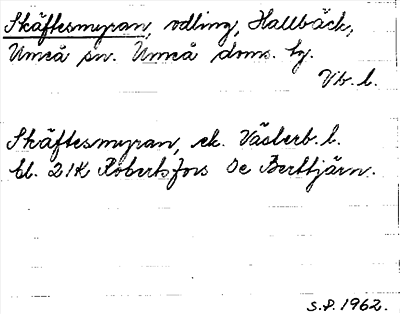 Skäftesmyran, odling, Hallbäck,
Umeå sn. Umeå doms. hg.
Vb. l.
Skäftesmyran, ek. Västerb. l.
bl. 21K Robertsfors Sc Berttjärn.
S.P. 1962.